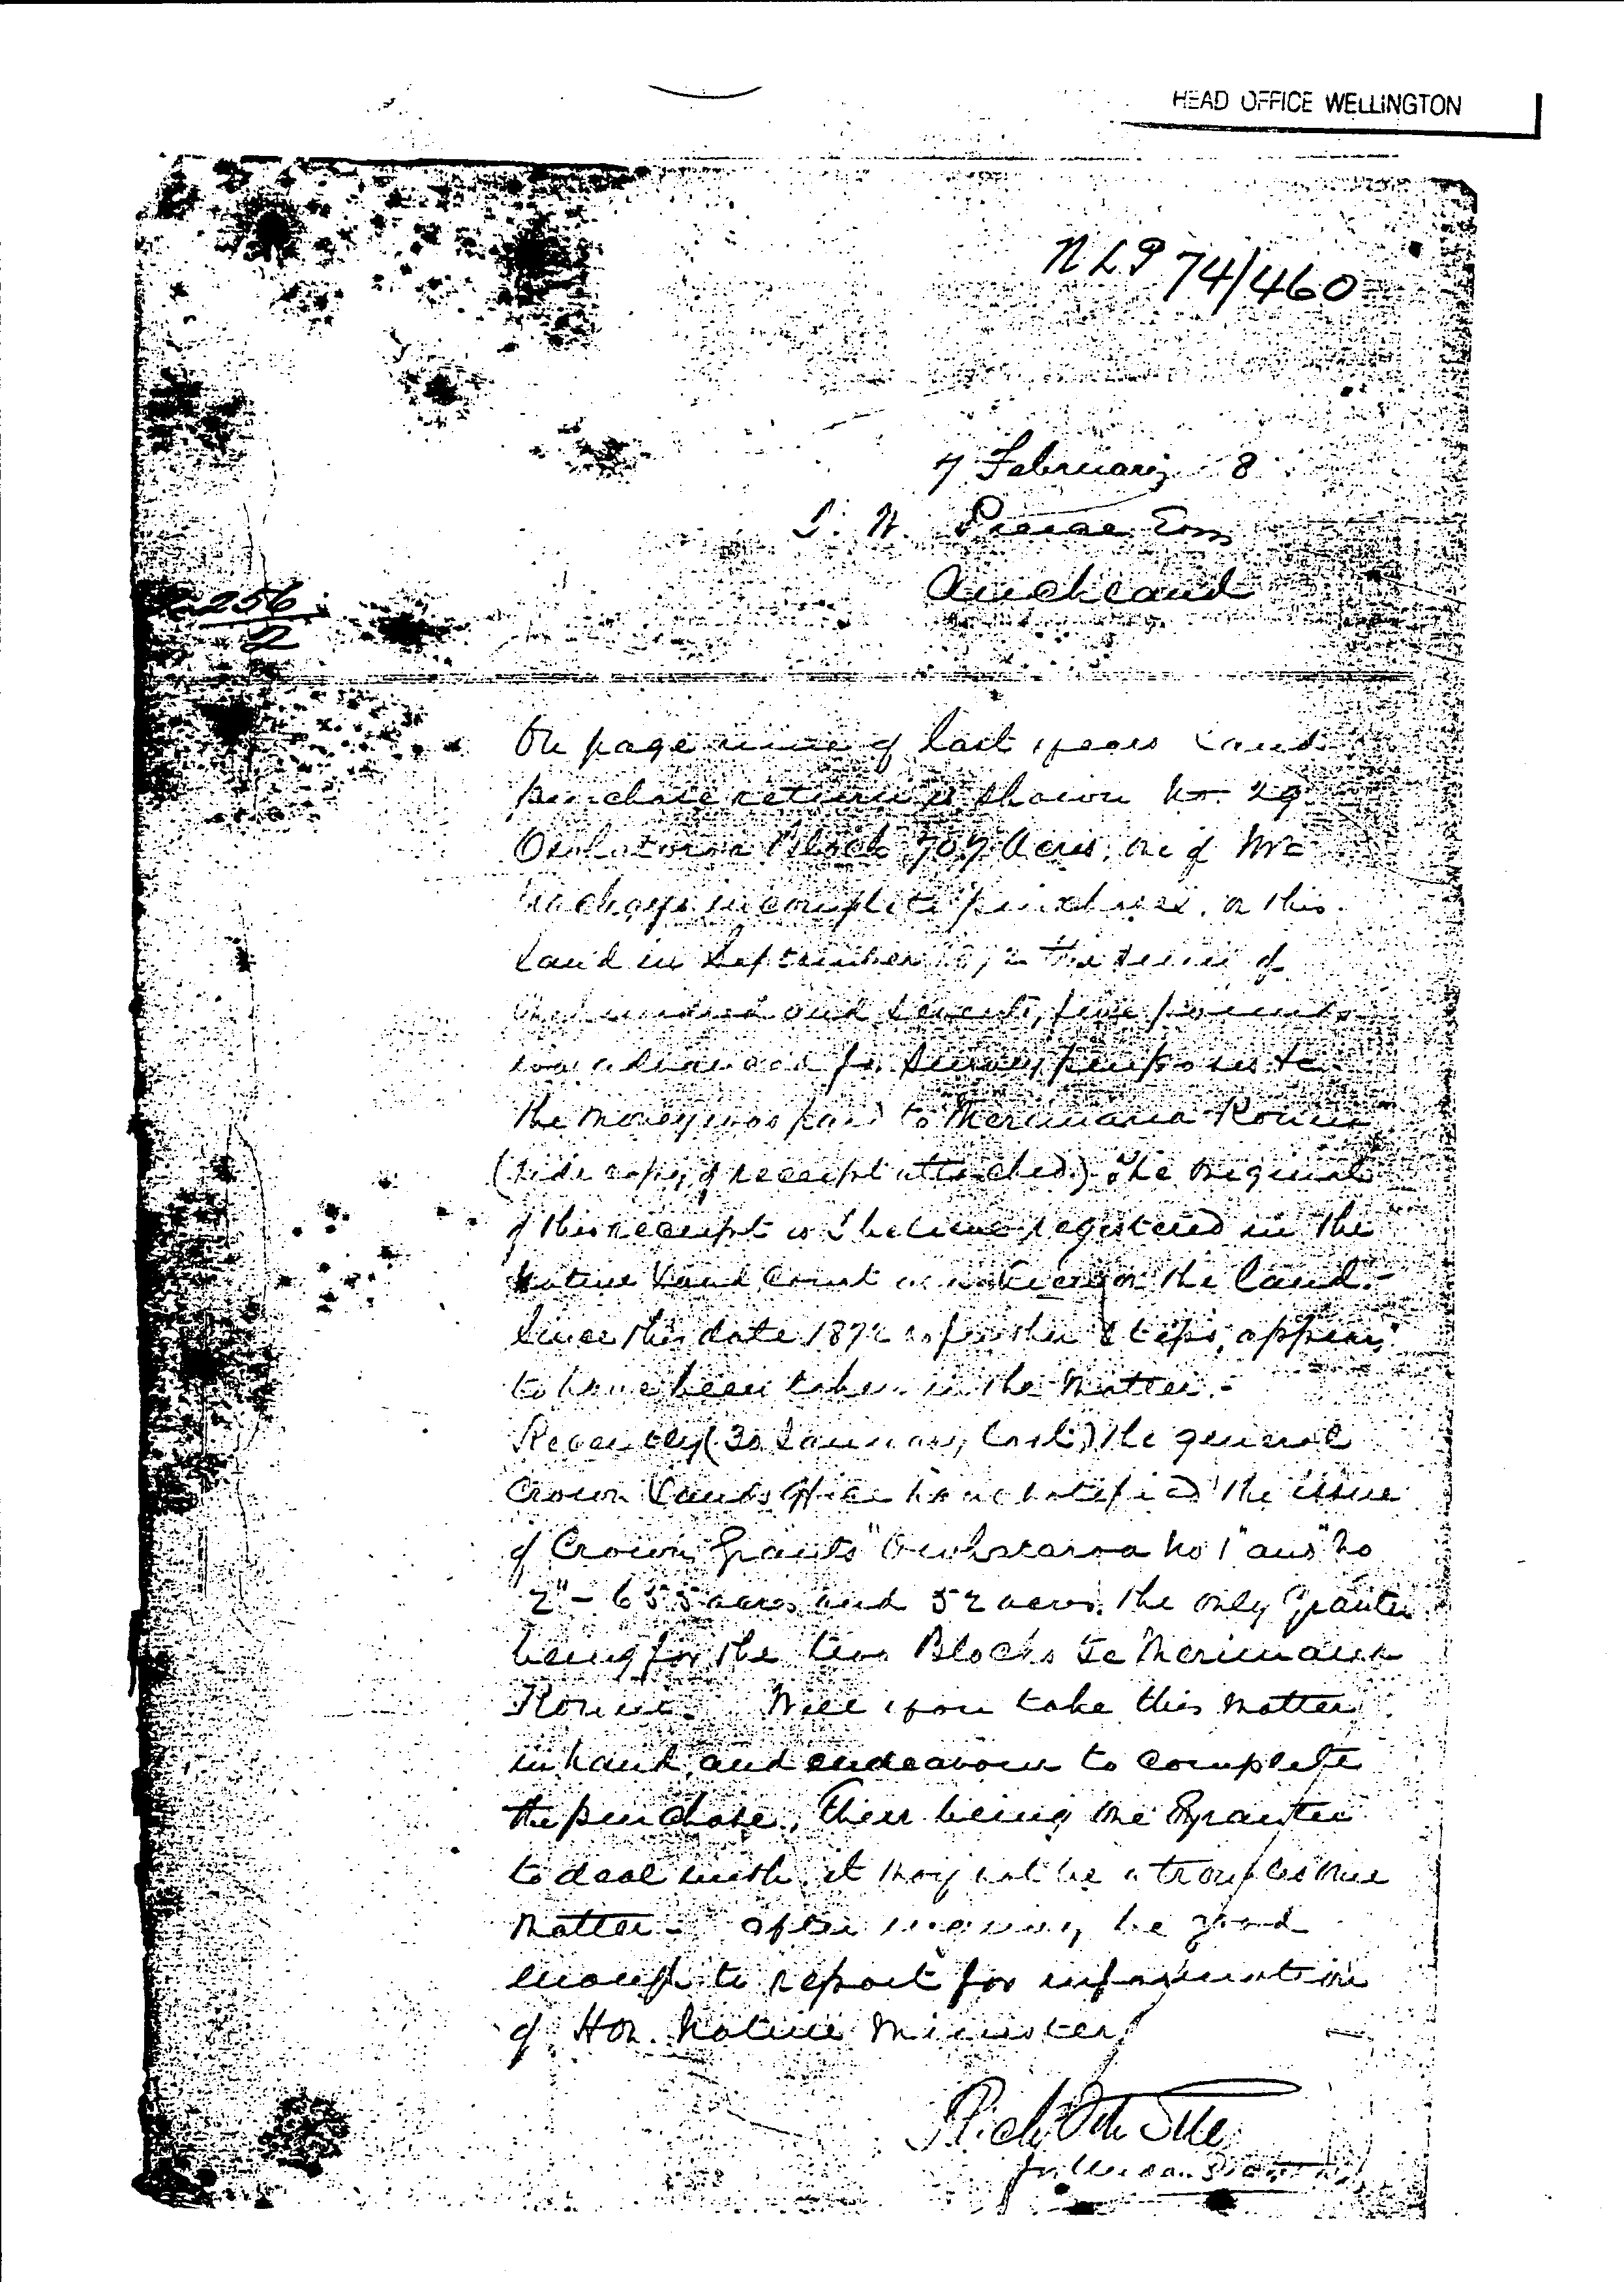 HEAD OFFICE WELLINGTON
NLP 74/460
7 February 8
Esq
Auckland
256
2
On page nine of last years Land
purchase return is shown No 29
Block 707 Acres, one of Mr
incomplete purchases, on this
land in September 1872 the sum of
One hundred and seventy five pounds
was advanced for Survey purposes
the money was paid to Merimana Konui
(vide copy of receipt attached). The original
of this receipt is I believe registered in the
Native Land Court on the land.-
Since this date 1872 no further steps, appear,
to have been taken in the matter.-
Recently (30 January last) the general
Crown Lands Office have notified the issue
of Crown Grants " No 1" and "No
2" - 655 acres and 52 acres. the only Grantee
being for the two Blocks Te Merimana
Konui. Will you take this matter
in hand, and endeavour to complete
the purchase, there being one Grantee
to deal with, it may not be a troublesome
matter - after inquiry be good
enough to report for information
of Hon. Native Minister